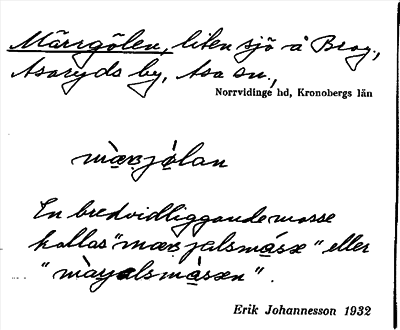 Märrgölen, liten sjö å Brog.,
Asaryds by, Asa sn.,
Norrvidinge hd, Kronobergs län
mær̀jølan
En bredvidliggande mosse
kallas "mærjalsmåsx" eller
"màryalsmåsæn".
Erik Johannesson 1932